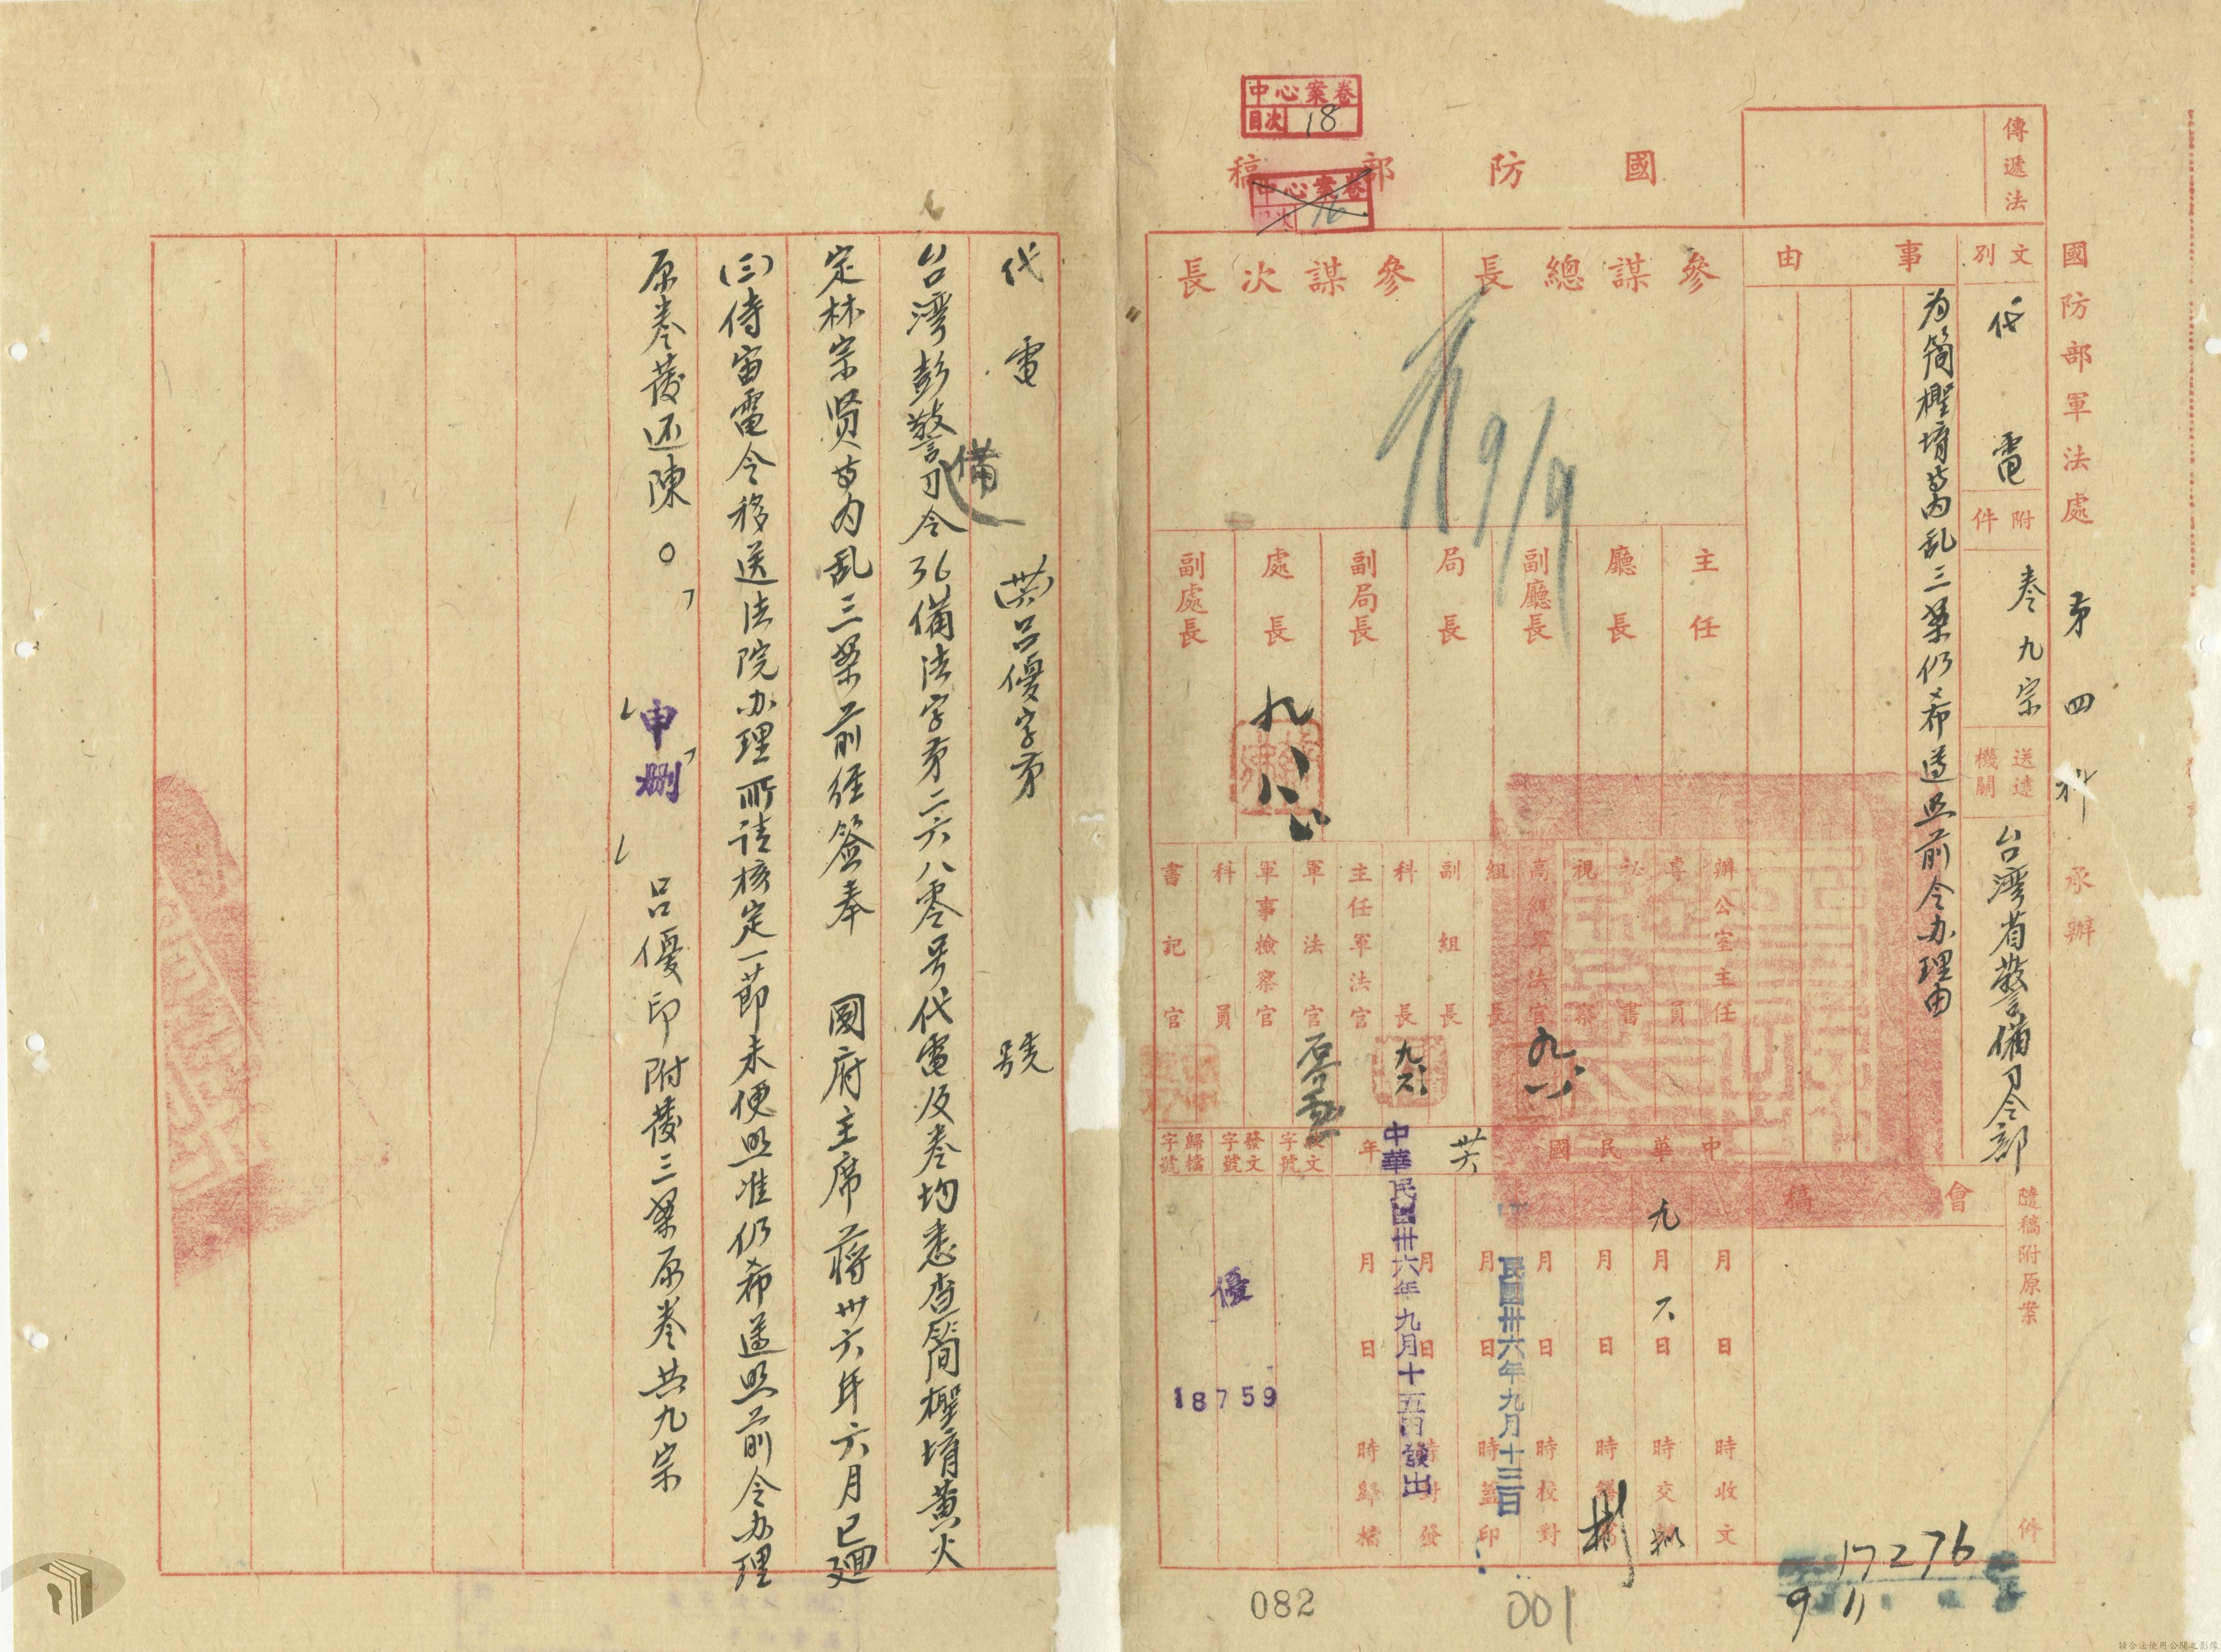 國防部軍法處 第四科 承辦
傳遞法
國防部稿
中心案卷
目次 18
中心案卷
16
文別 代電
附件 卷九宗
送達機關 台灣省警備司令部
事由
為簡檉堉等內乱三案仍希遵照前令办理由
參謀總長
參謀次長
9/9
主任
廳長
副廳長
局長
副局長
處長
副處長
辦公室主任
專員
秘書
視察
高級軍法官
組長
副組長
科長
主任軍法官
軍法官
軍事檢察官
科員
書記官
會稿
隨稿附原案 件
中華民國 卅六 年
月 日 時 收文
九月 六日 時 交辦
月 日 時 繕寫
月 日 時 校對
月 日 時 蓋印
月 日 時 封發
月 日 時 歸檔
民國卅六年九月十三日
中華民國卅六年九月十五日發出
收文字號
發文字號
歸檔字號
優
18759
17276
9 11
082
001
代電 (卅六)呂優字第 號
台湾彭警備司令36備法字第二六八零号代電及卷均悉查簡檉堉黄火
定林宗贤等內乱三案前经簽奉 國府主席蔣卅六年六月已迴
(三)侍宙電令移送法院办理所请核定一節未便照准仍希遵照前令办理
原卷發还陳。申刪呂優印附發三案原卷共九宗
請合法使用公開之影像